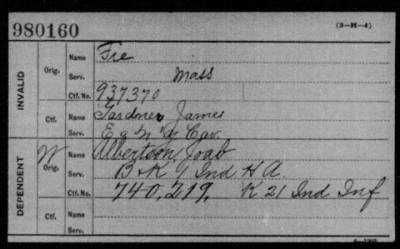 980160 (3-H-4)
INVALID
Orig.
Name Fie
Serv. Mass
Ctf. No. 937370
Ctf.
Name Gardner, James
Serv. E 9 N Y Cav.
DEPENDENT
W Orig.
Name Albertson, Joab
Serv. B & K 1 Ind H A.
740,219, K 21 Ind Inf
Ctf.
Name
Serv.